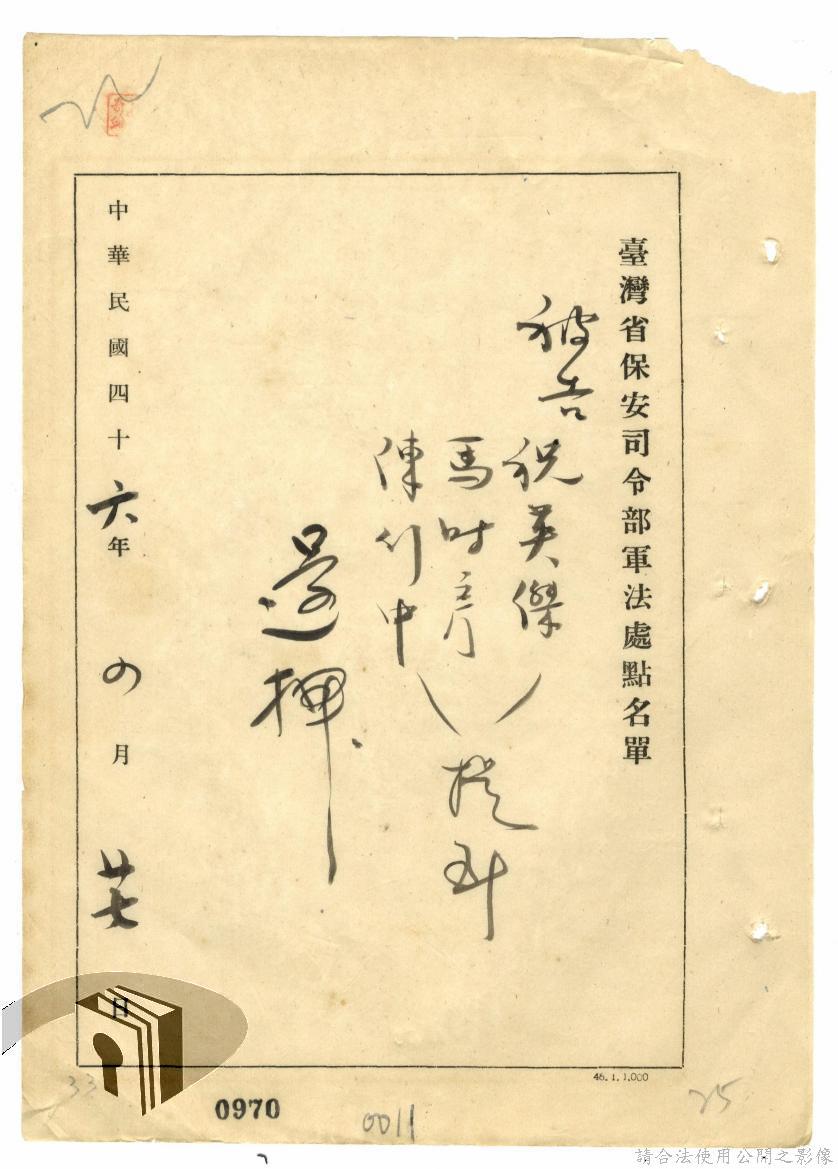 臺灣省保安司令部軍法處點名單
被告祝英傑
馬時彥
陳行中
提到
還押
中華民國四十六年四月廿七日
46.1.1.000
0970
0011
33
25
請合法使用公開之影像